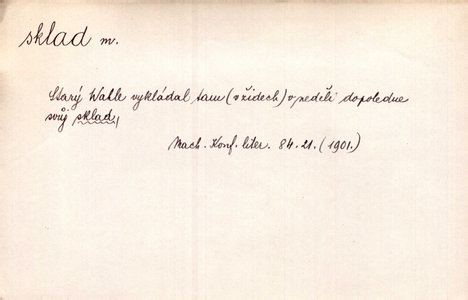 sklad m.
Starý Wahle vykládal tam (v židech) v neděli dopoledne
svůj sklad,
Mach. Konf. liter. 84. 21. (1901.)